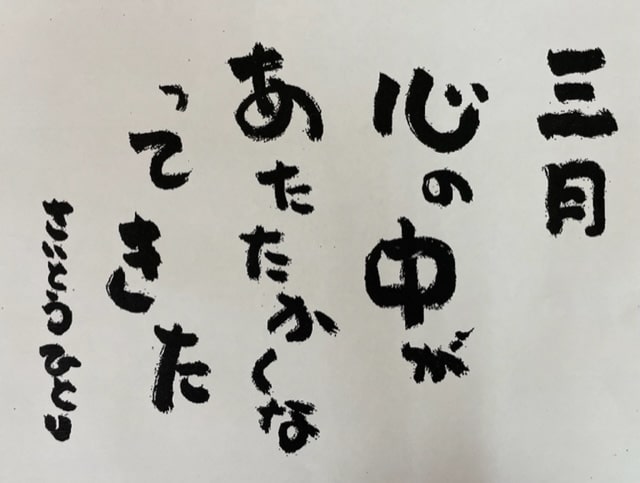 三月
心の中が
あたたかくな
ってきた
さいとうひとり